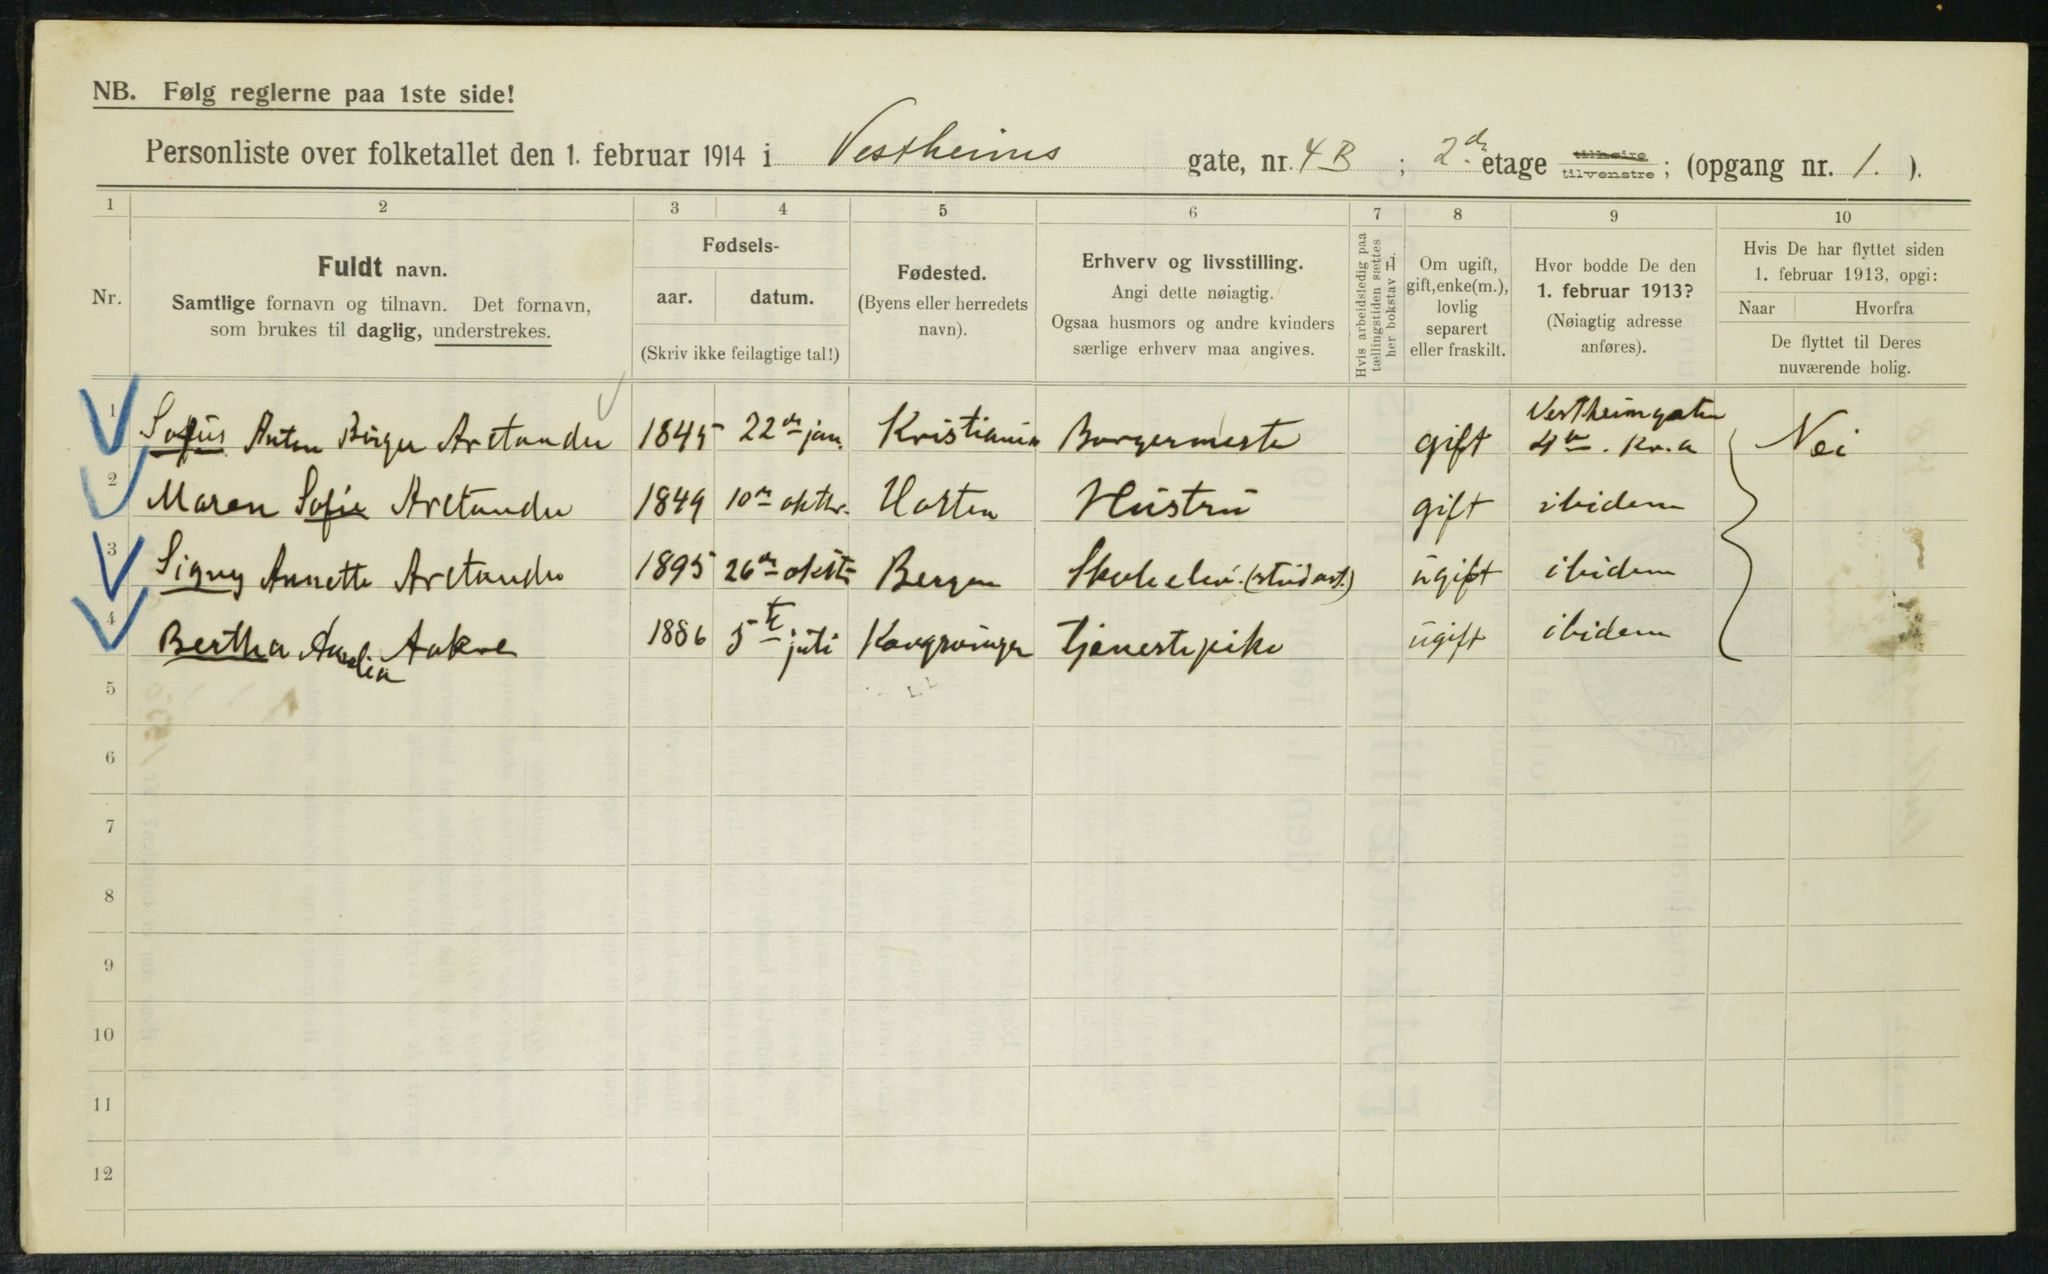 NB. Følg reglerne paa 1ste side!
Personliste over folketallet den 1. februar 1914 i Vestheims gate, nr. 4B ; 2den etage tilhøire tilvenstre ; (opgang nr. 1. ).
1 2 3 4 5 6 7 8 9 10
Nr.
Fuldt navn.
Samtlige fornavn og tilnavn. Det fornavn,
som brukes til daglig, understrekes.
Fødsels-
aar. datum.
(Skriv ikke feilagtige tal!)
Fødested.
(Byens eller herredets
navn).
Erhverv og livsstilling.
Angi dette nøiagtig.
Ogsaa husmors og andre kvinders
særlige erhverv maa angives.
Hvis arbeidsledig paa
tællingstiden sættes
her bokstav L:
Om ugift,
gift, enke(m.),
lovlig
separert
eller fraskilt.
Hvor bodde De den
1. februar 1913?
(Nøiagtig adresse
anføres).
Hvis De har flyttet siden
1. februar 1913, opgi:
Naar Hvorfra
De flyttet til Deres
nuværende bolig.
1 Sofus Anton Birger Arctander 1845 22de jan. Kristiania Borgermester gift Vestheimgaten 4B. Kr.a Nei
2 Maren Sofie Arctander 1849 10de oktbr. Horten Hustru gift ibidem
3 Signy Annette Arctander 1895 26de oktb Bergen Skoleelev. (student.) ugift ibidem
4 Bertha Amalia Aakre 1886 5te juli Kongsvinger tjenestepike ugift ibidem
5
6
7
8
9
10
11
12